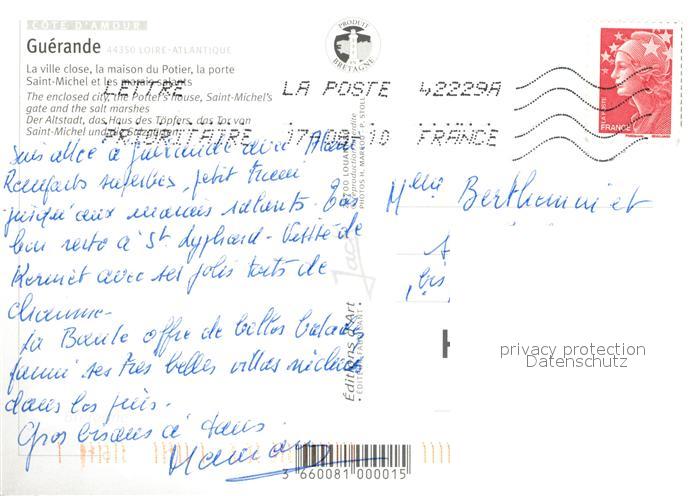 CÔTE D'AMOUR
Guérande 44350 LOIRE-ATLANTIQUE
La ville close, la maison du Potier, la porte
Saint-Michel et les marais salants
The enclosed city, the Potter's house, Saint-Michel's
gate and the salt marshes
Der Altstadt, das Haus des Töpfers, das Tor van
Saint-Michel und die Salzgärten
PRODUIT EN BRETAGNE
LETTRE LA POSTE 42229A
PRIORITAIRE 17-08-10 FRANCE
LA POSTE
FRANCE
Suis allée à Guérande avec
Remparts superbes, petit train
jusqu'aux marais salants. Très
bon resto à St Lyphard - Visite de
Kermet avec ses jolis toits de
chaume.
La Baule offre de belles balades
parmi ses très belles villas nichées
dans les pins.
Gros bisous à tous.
Maman
Berthommier
bis
Éditions d'Art
Jack
PHOTOS H. MARKOU - P. STOLL
privacy protection
Datenschutz
3 660081 000015